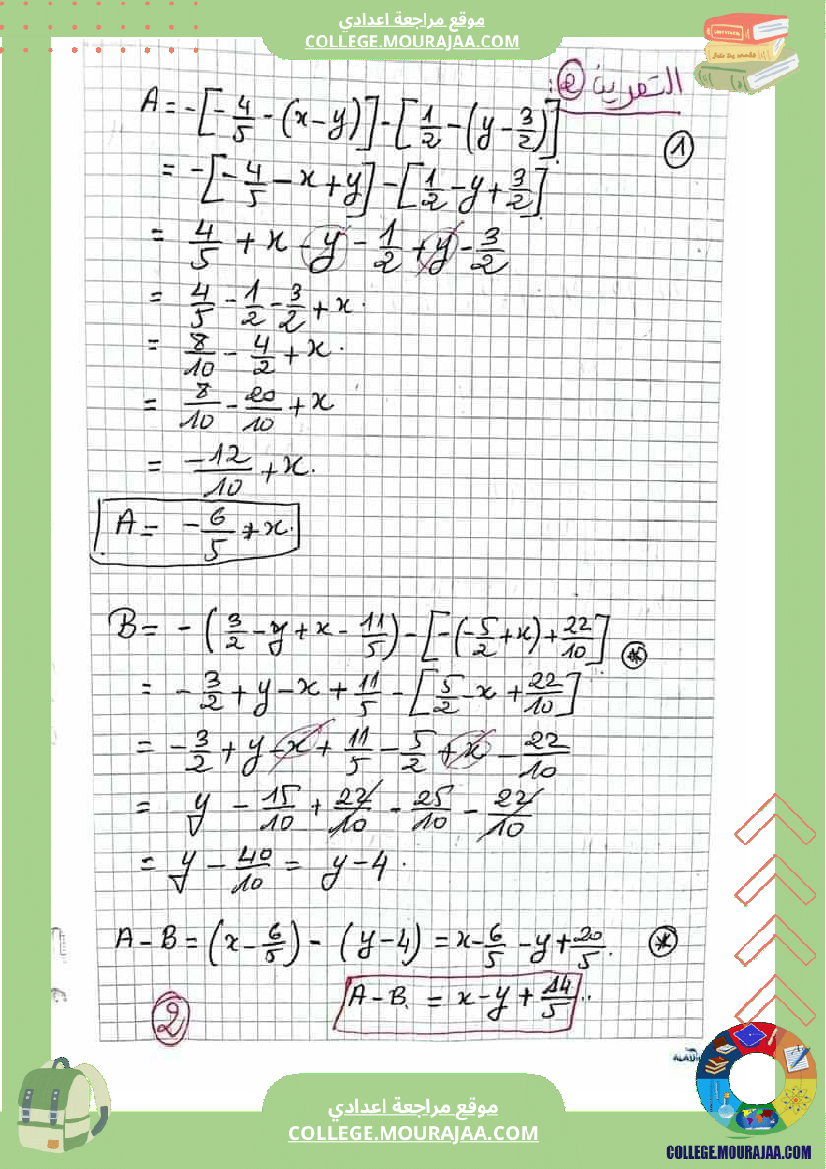 موقع مراجعة اعدادي
COLLEGE.MOURAJAA.COM
التمرين 2:
1
A = -[-4/5 - (x-y)] - [1/2 - (y - 3/2)]
= -[-4/5 - x + y] - [1/2 - y + 3/2]
= 4/5 + x - y - 1/2 + y - 3/2
= 4/5 - 1/2 - 3/2 + x.
= 8/10 - 4/2 + x.
= 8/10 - 20/10 + x
= -12/10 + x.
A = -6/5 + x.
B = -(3/2 - y + x - 11/5) - [-(-5/2 + x) + 22/10] *
= -3/2 + y - x + 11/5 - [5/2 - x + 22/10]
= -3/2 + y - x + 11/5 - 5/2 + x - 22/10
= y - 15/10 + 22/10 - 25/10 - 22/10
= y - 40/10 = y - 4.
A - B = (x - 6/5) - (y - 4) = x - 6/5 - y + 20/5. *
A - B. = x - y + 14/5..
2
موقع مراجعة اعدادي
COLLEGE.MOURAJAA.COM
COLLEGE.MOURAJAA.COM